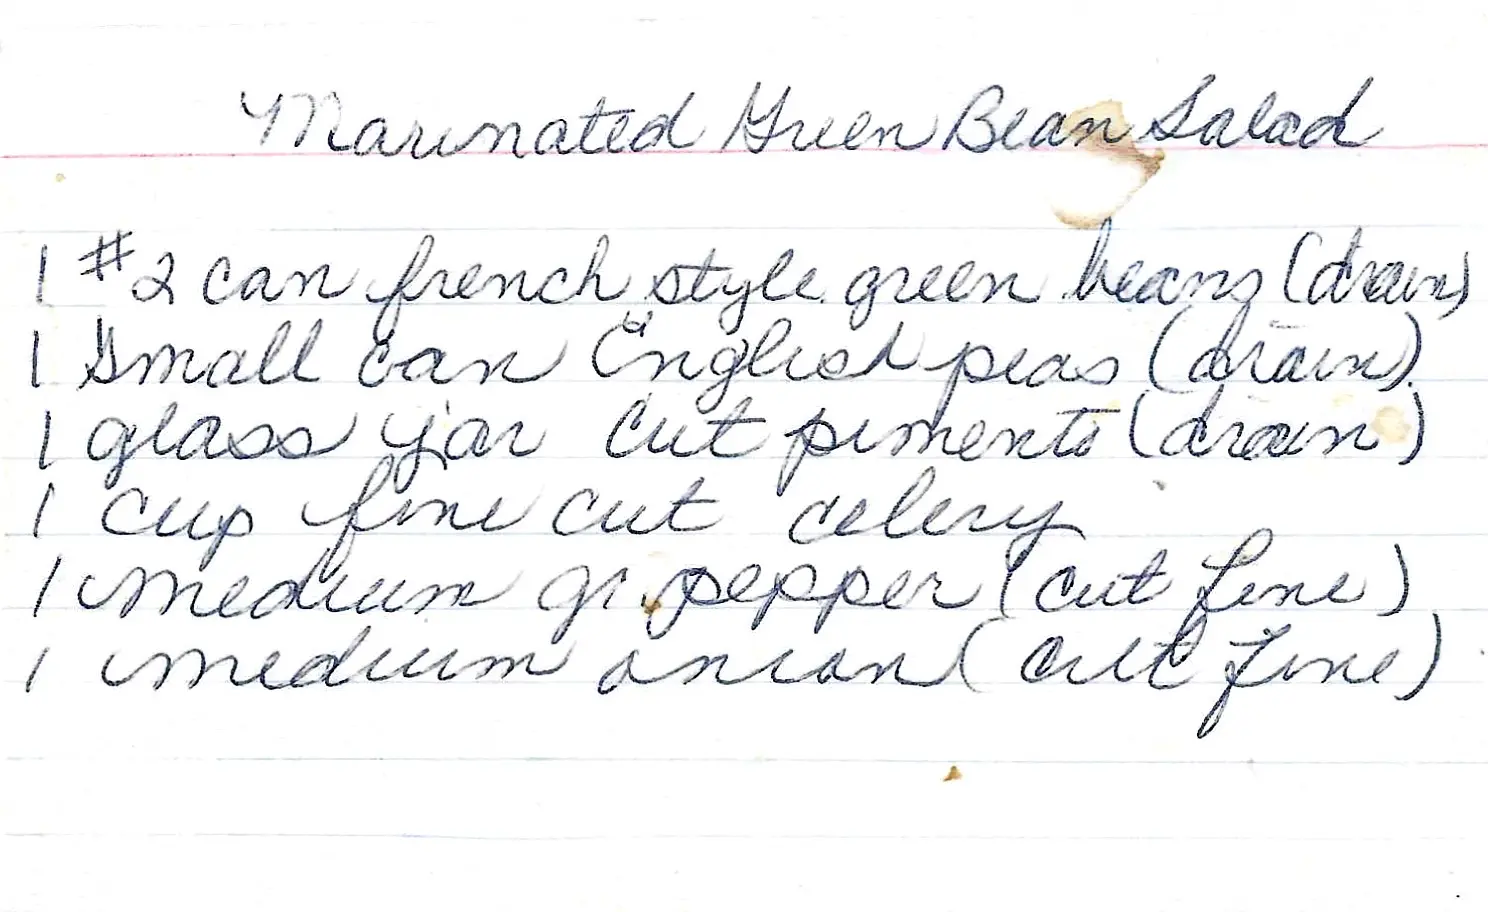 Marinated Green Bean Salad
1 #2 can french style green beans (drain)
1 Small can English peas (drain)
1 glass jar cut pimento (drain)
1 cup fine cut celery
1 medium gr. pepper (cut fine)
1 medium onion (cut fine)